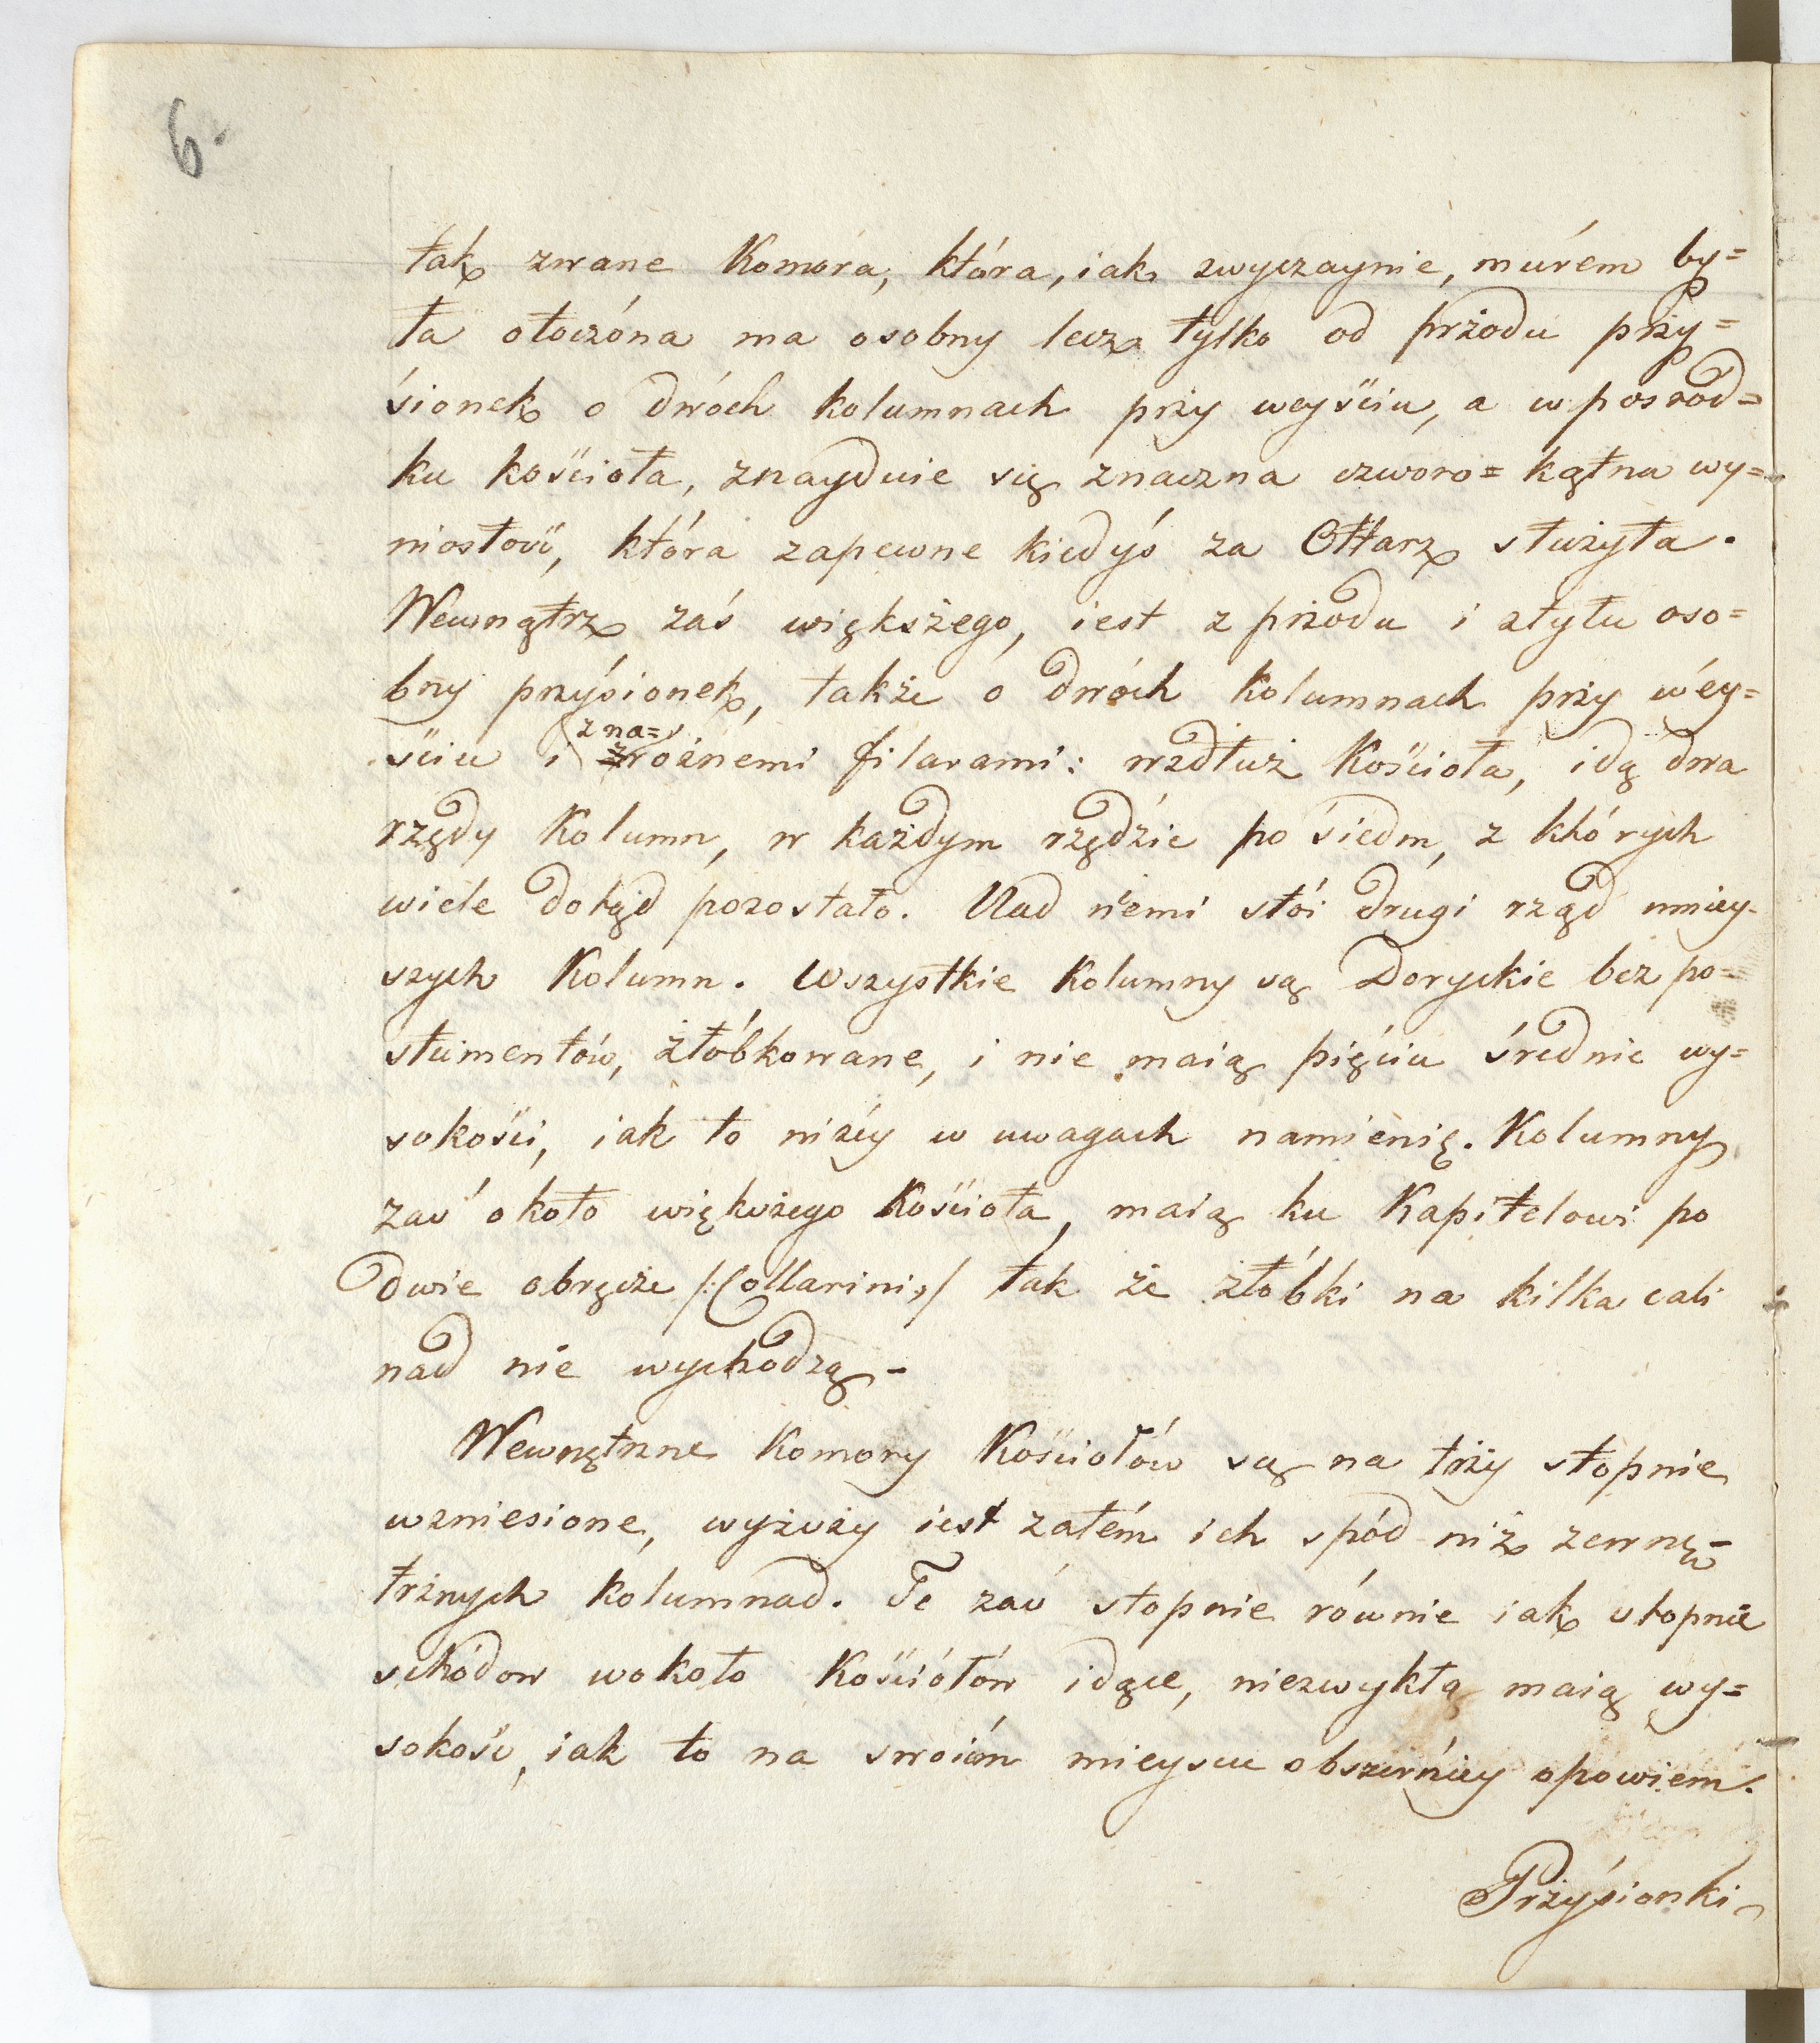 6.
tak zwane Komora, która, iak zwyczaynie, murém by=
ła otoczóna ma osobny lecz tylko od przodu przy=
śionek o dwóch kolumnach przy weyściu, a w posrod=
ku kościoła, znayduie się znaczna czworo= kątna wy=
niosłość, która zapewne kiedyś za Ołtarz służyła.
Wewnątrz zaś większego, iest z przodu i ztyłu oso=
bny przyśionek, także o dwóch kolumnach przy wéy=
ściu i zna=
rożnemi filarami: wzdłuż Kościoła, idą dwa
rzędy Kolumn, w każdym rzędzie po śiedm, z których
wiele dotąd pozostało. Nad niemi stói drugi rząd mniey-
szych Kolumn. Wszystkie Kolumny są Doryckie bez po=
stumentów, żłóbkowane, i nie maią pięciu średnic wy=
sokości, iak to niżéy w uwagach namienię. Kolumny
zaś około większego Kościoła, maią ku Kapitelowi po
dwie obręcze /:Collarini:/ tak że żłóbki na kilka cali
nad nie wychodzą -
Wewnętrzne Komory Kościołów są na trzy stopnie
wzniesione, wyższy iest zatém ich spód niż zewnę-
trznych kolumnad. Te zaś stopnie równie iak stopnie
schodow wokoło Kościółów idące, niezwykłą maią wy=
sokość, iak to na swoiém mieyscu obszérniéy opowiem.
Przyśionki